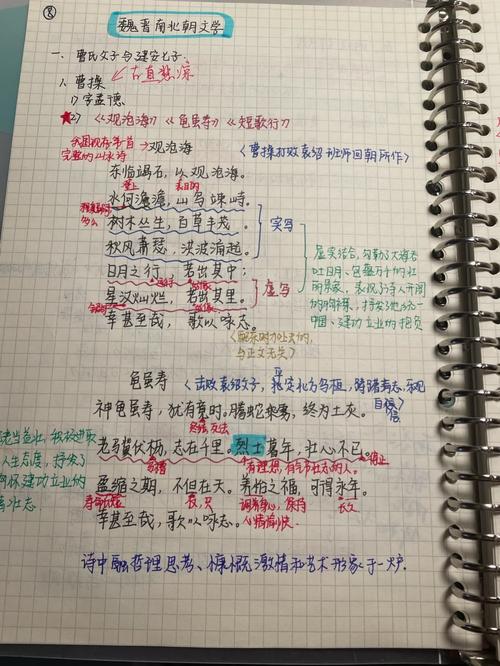 ⑧
魏晋南北朝文学
一、曹氏父子与建安七子.
1、曹操 古直悲凉
1) 字孟德.
★2) 《观沧海》《龟虽寿》《短歌行》
我国现存第一首完整的山水诗 → 观沧海 〈曹操打败袁绍班师回朝所作〉
东临碣石, 以观沧海。
登上 目的
水何澹澹, 山岛竦峙。
树木丛生, 百草丰茂。 实写
秋风萧瑟, 洪波涌起。
日月之行, 若出其中;
星汉灿烂, 若出其里。 虚写
幸甚至哉, 歌以咏志。
虚实结合, 勾勒了大海吞吐日月、包蕴万千的壮
与正文无关〉
龟虽寿
神龟虽寿, 犹有竟时。腾蛇乘雾, 终为土灰。
老骥伏枥, 志在千里。烈士暮年, 壮心不已。
停止
有理想、有抱负的人。
盈缩之期, 不但在天。养怡之福, 可得永年。
仅, 只 调养身心, 保持心情愉快. 长久
幸甚至哉, 歌以咏志。
老当益壮, 积极进取
人生态度, 抒发了
建功立业的
壮志
诗中融哲理思考、慷慨激情和艺术形象于一炉.